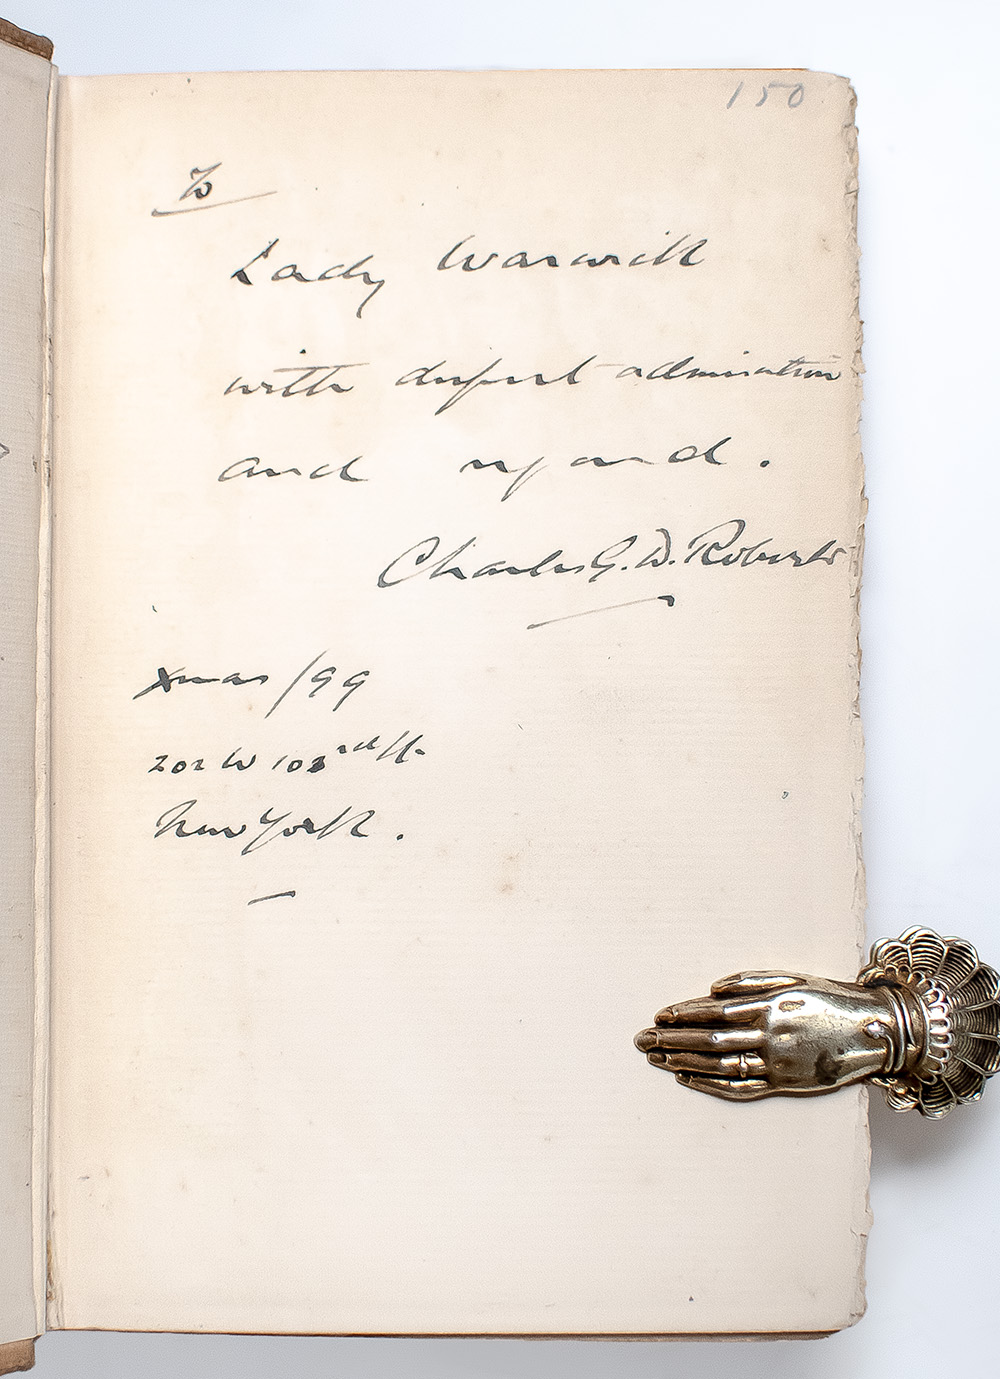 150
To
Lady Warwick
with deepest admiration
and regard.
Charles G. D. Roberts
Xmas /99
202 W 103rd St.
New York.